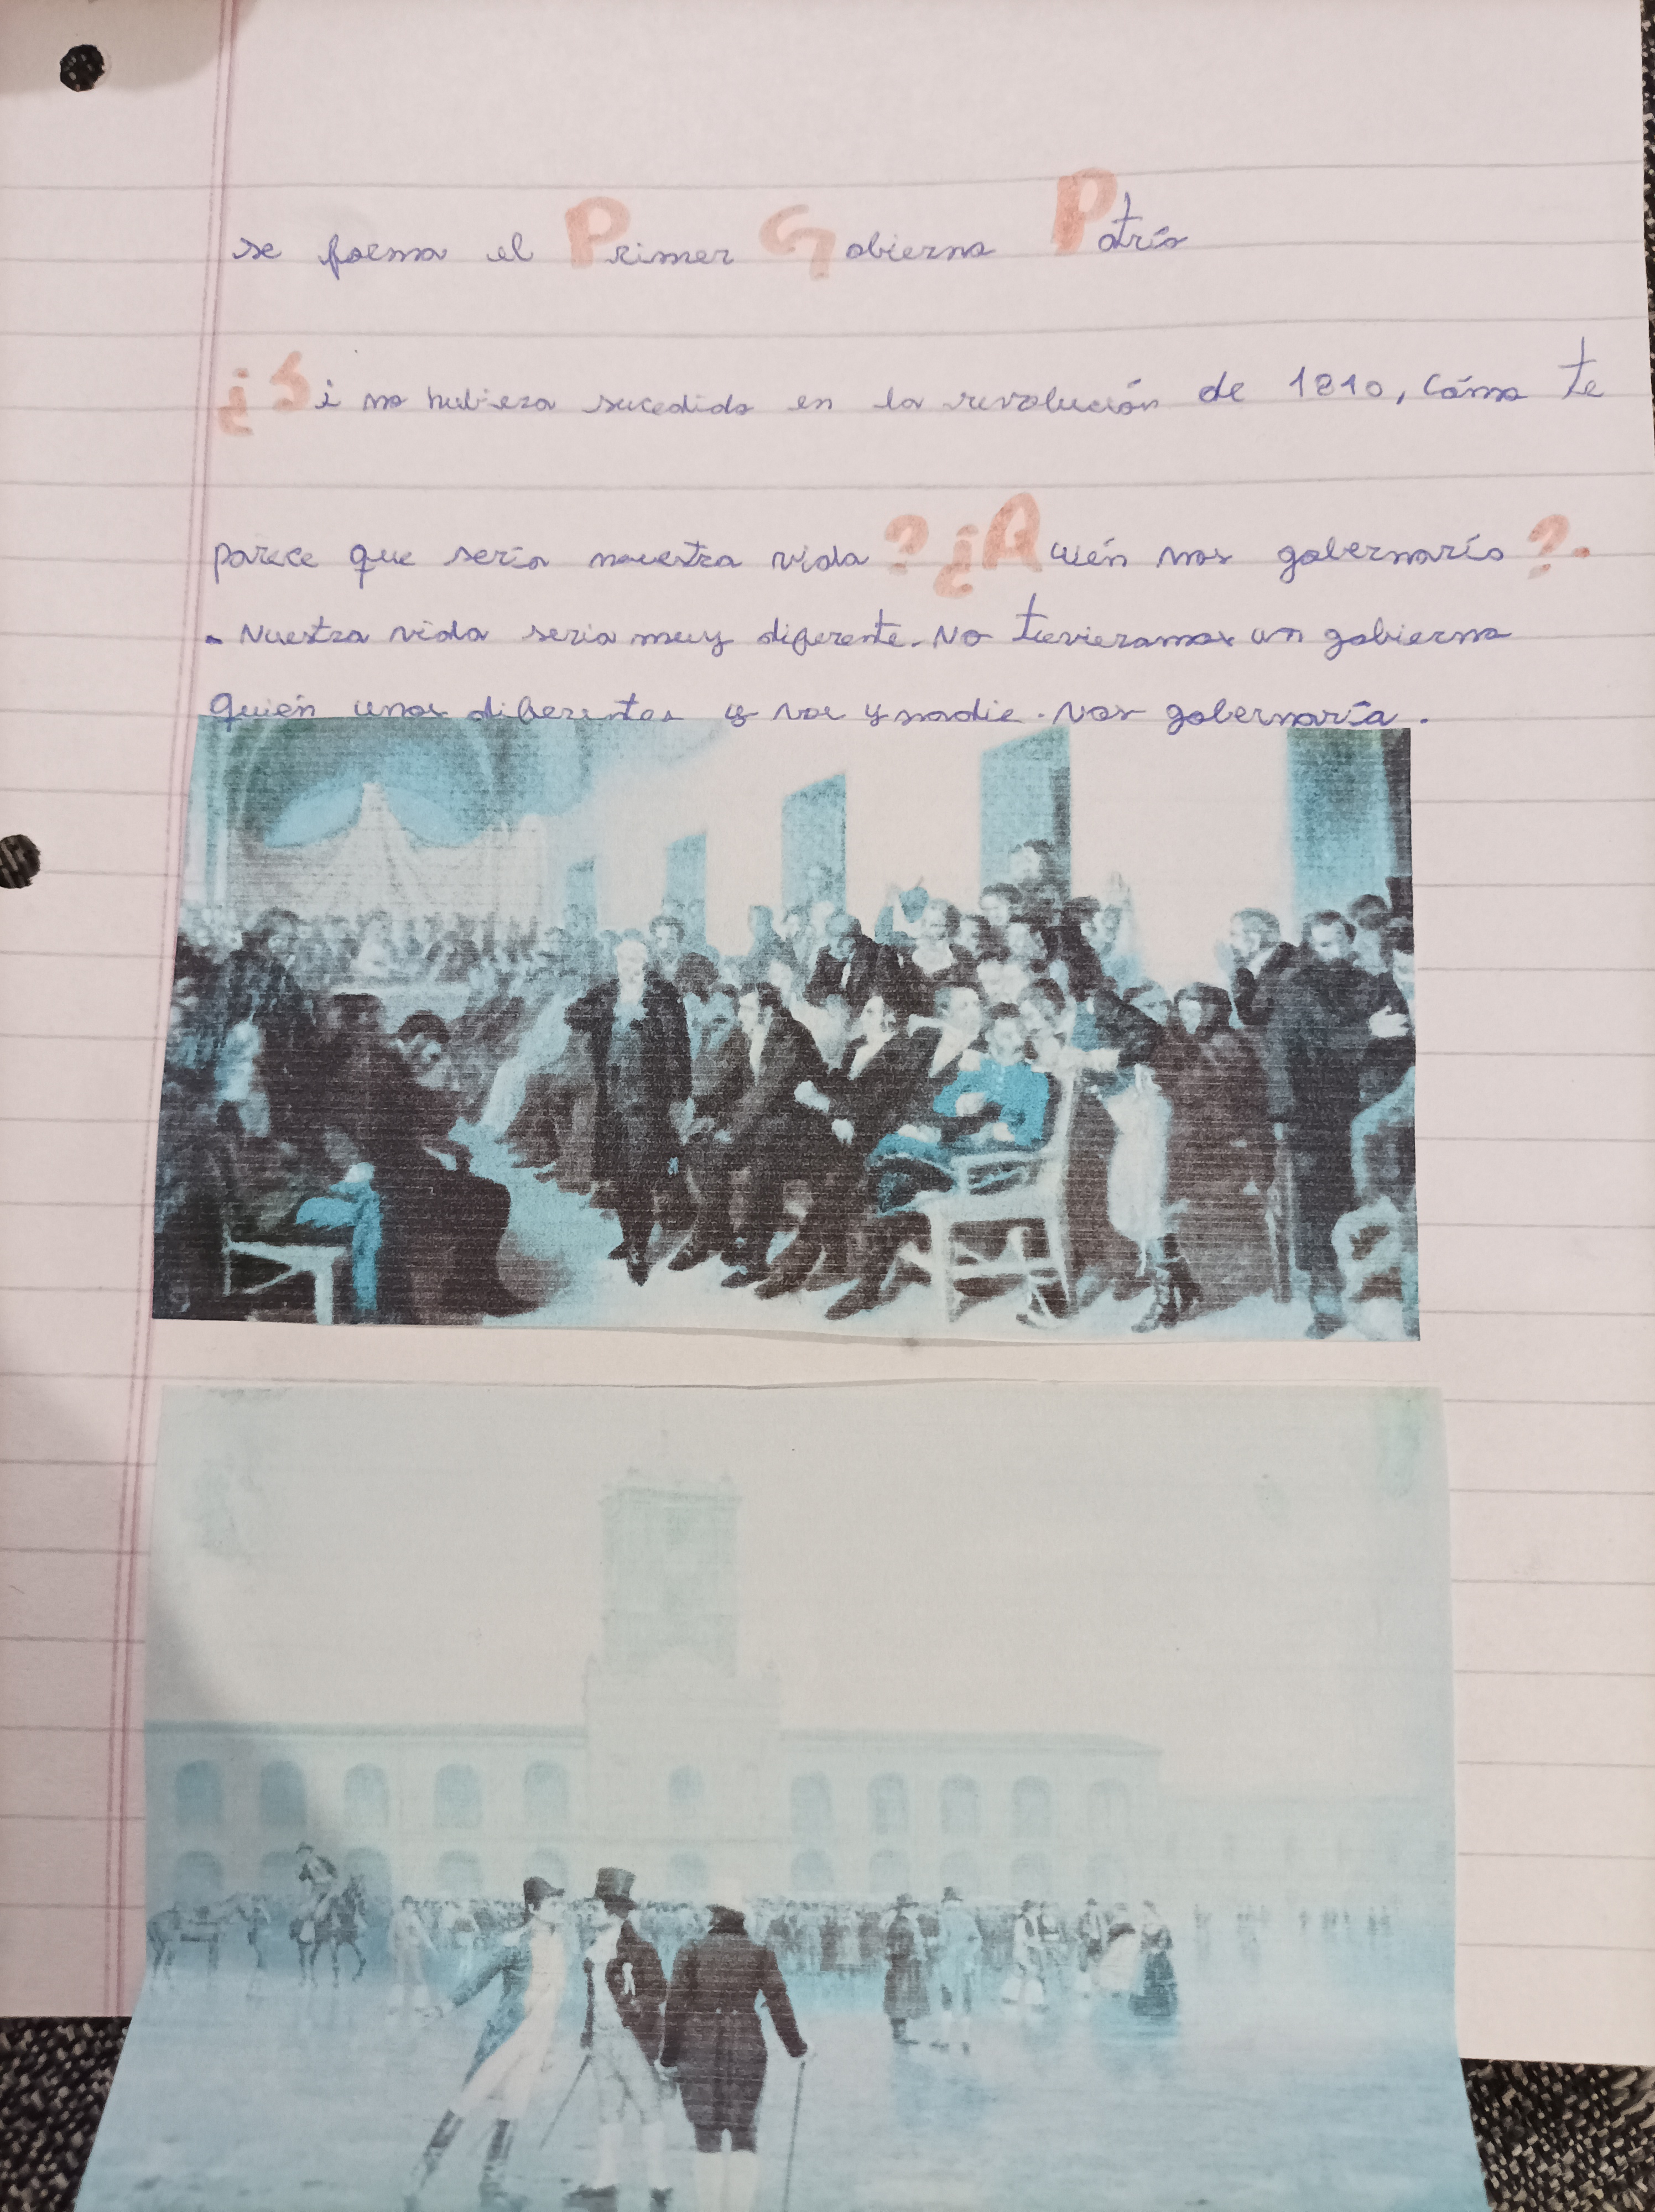 se forma el Primer Gobierno Patrio
¿Si no hubiera sucedido en la revolución de 1810, cómo te
parece que sería nuestra vida? ¿Auién nos gobernaría?.
- Nuestra vida seria muy diferente. No tuvieramos un gobierno
quién unos diferentes y nos y nadie. Nos gobernaría.